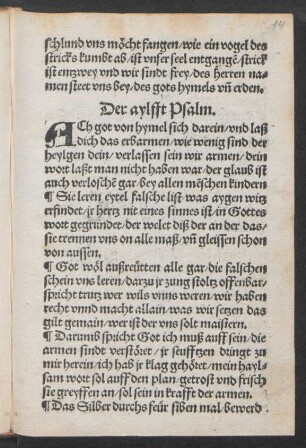 14
schlund vns möcht fangen/wie ein vogel des
stricks kumbt ab/ist vnser seel entgangē/strick
ist entzwey vnd wir sindt frey/des herren na-
men steet vns bey/des gots hymels vñ erden.
Der aylfft Psalm.
ACh got von hymel sich darein/vnd laß
dich das erbarmen/wie wenig sind der
heylgen dein/verlassen sein wir armen/dein
wort laßt man nicht haben war/der glaub ist
auch verloschē gar/bey allen mēschen kindern
¶ Sie leren eytel falsche list/was aygen witz
erfindet/jr hertz nit eines sinnes ist/in Gottes
wort gegründet/der welet diß der an der das/
sie trennen vns on alle maß/vñ gleissen schon
von aussen.
¶ Got wöl außreütten alle gar/die falschen
schein vns leren/darzu jr zung stoltz offenbar/
spricht trutz wer wils vnns weren/wir haben
recht vnnd macht allain/was wir setzen das
gilt gemain/wer ist der vns solt maistern.
¶ Darumb spricht Got ich muß auff sein/die
armen sindt verstöret/jr seufftzen dringt zu
mir herein/ich hab jr klag gehöret/mein hayl-
sam wort sol auff den plan/getrost vnd frisch
sie greyffen an/söl sein in krafft der armen.
¶ Das Silber durchs feür siben mal/bewerd